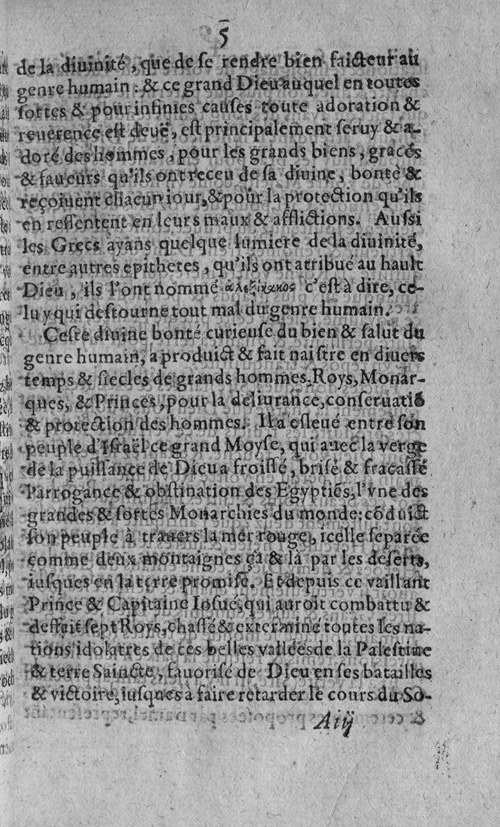 5
de la diuinité, que de se rendre bien faicteur au
genre humain : & ce grand Dieu auquel en toutes
sortes & pour infinies causes toute adoration &
reuerence est deuë, est principalement seruy & a-
doré des hommes, pour les grands biens, graces
& faueurs qu'ils ont receu de sa diuine, bonté &
reçoiuent chacun iour, & pour la protection qu'ils
en ressentent en leurs maux & afflictions. Aussi
les Grecs ayans quelque lumiere de la diuinité,
entre autres epithetes, qu'ils ont atribué au hault
Dieu, ils l'ont nommé ἀλεξίκακος c'est à dire, ce-
luy qui destourne tout mal du genre humain.
Ceste diuine bonté curieuse du bien & salut du
genre humain, a produict & fait naistre en diuers
temps & siecles de grands hommes, Roys, Monar-
ques, & Princes, pour la deliurance, conseruatiõ
& protection des hommes. Il a esleué entre son
peuple d'Israël ce grand Moyse, qui auec la verge
de la puissance de Dieu a froissé, brisé & fracassé
l'arrogance & obstination des Egyptiẽs, l'vne des
grandes & fortes Monarchies du monde: cõduict
son peuple à trauers la mer rouge, icelle separée
comme deux montaignes çà & là par les deserts,
iusques en la terre promise. Et depuis ce vaillant
Prince & Capitaine Iosué, qui auroit combattu &
deffait sept Roys, chassé & exterminé toutes les na-
tions idolatres de ces belles vallées de la Palestine
& terre Saincte, fauorisé de Dieu en ses batailles
& victoire, iusques à faire retarder le cours du So-
A iij